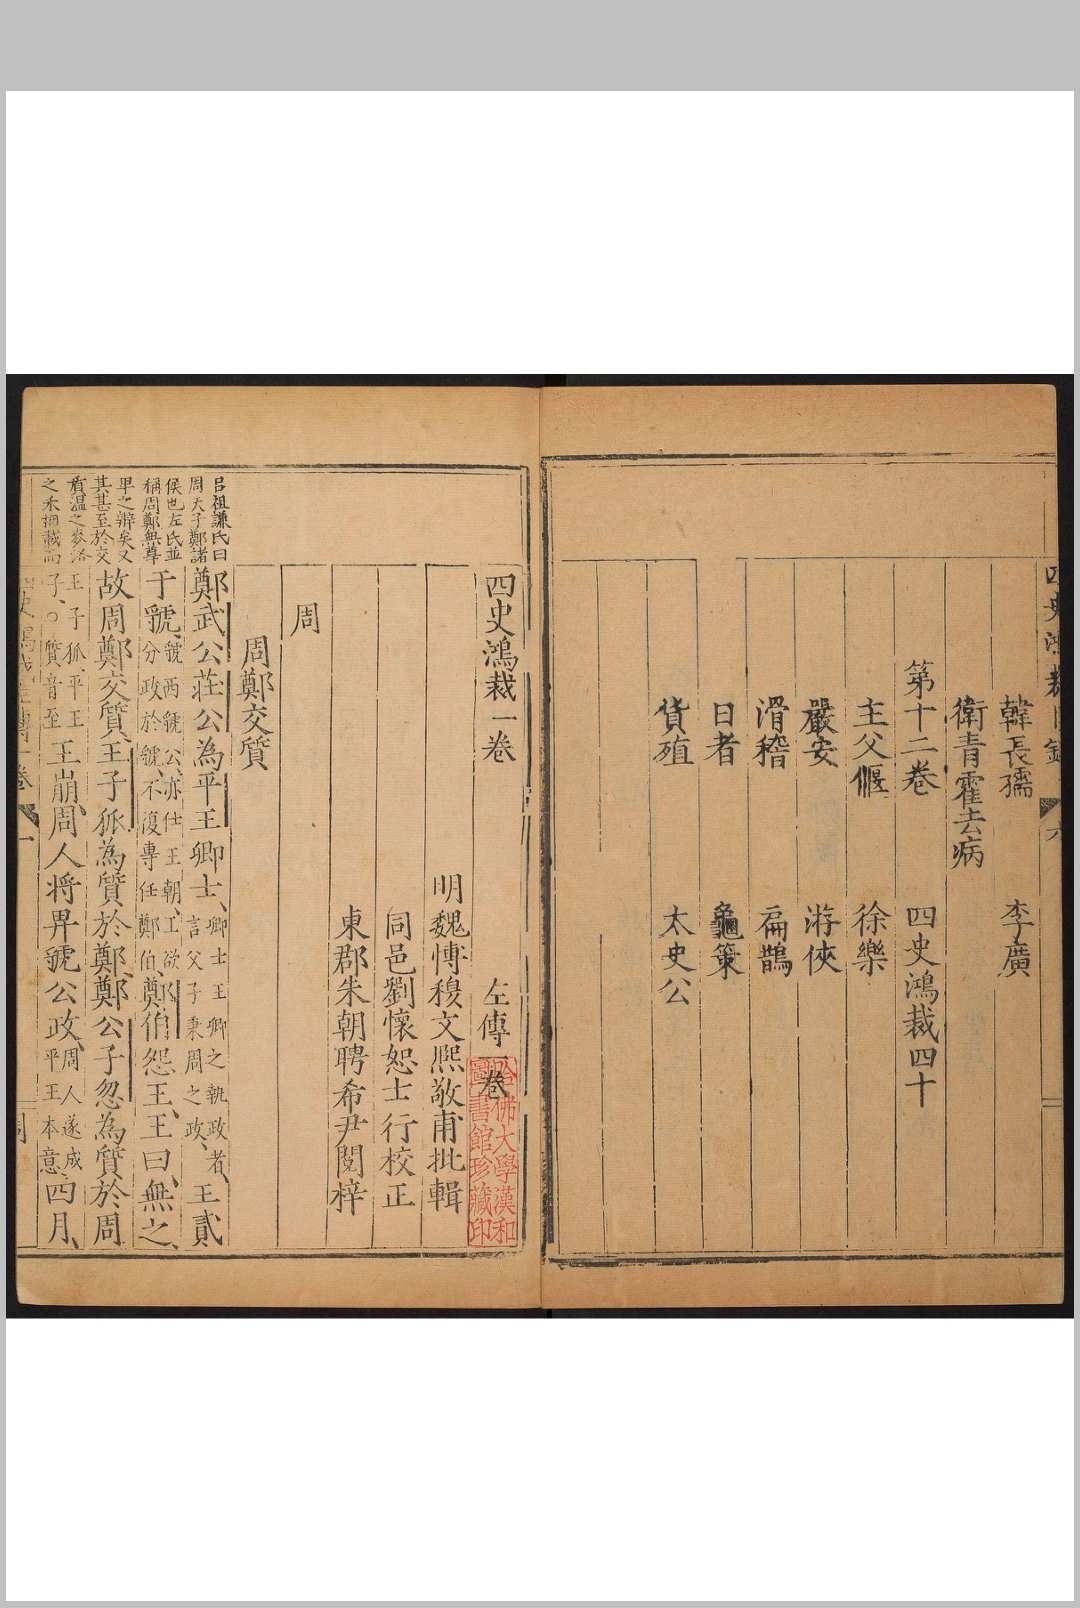 韓長孺 李廣
衛青霍去病
第十二卷 四史鴻裁四十
主父偃 徐樂
嚴安 游俠
滑稽 扁鵲
日者 龜策
貨殖 太史公
四史鴻裁一卷 左傳一卷
明魏博穆文熙敬甫批輯
同邑劉懷恕士行校正
東郡朱朝聘希尹閱梓
周
周鄭交質
呂祖謙氏曰
周天子鄭諸
侯也左氏並
稱周鄭無尊
卑之辨矣又
其甚至於交
質温之麥洛
之禾
鄭武公莊公為平王卿士、卿士王卿之執政者、言父子秉周之政、王貳
于虢、虢西虢公、亦仕王朝、王欲分政於虢、不復專任鄭伯、鄭伯怨王、王曰、無之、
故周鄭交質、王子狐為質於鄭、鄭公子忽為質於周
王子狐、平王子、○質音至王崩、周人將畀虢公政、周人遂成平王本意、四月、
哈佛大學漢和
圖書館珍藏印